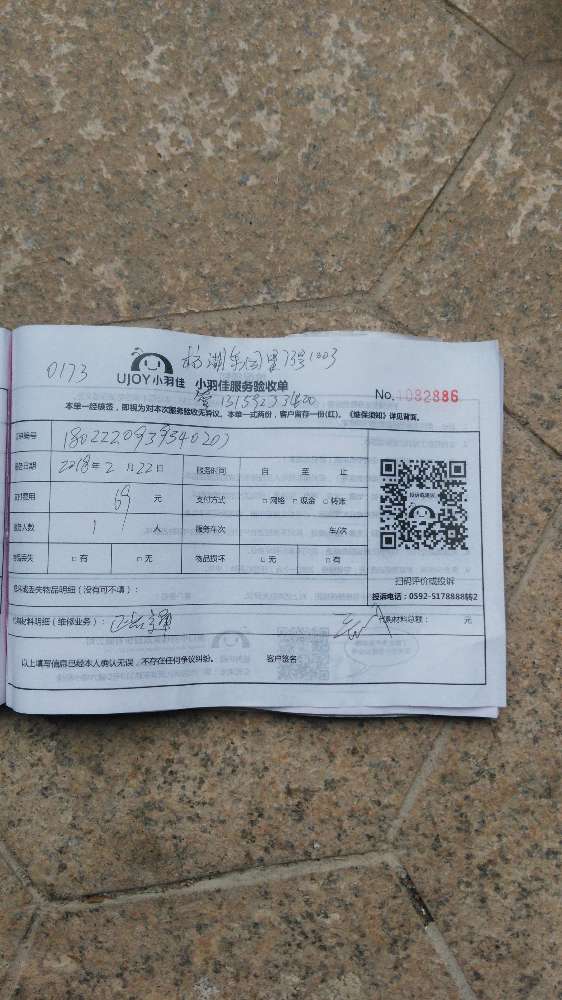 0173
UJOY小羽佳 小羽佳服务验收单
No.1082886
本单一经核签，即视为对本次服务验收无异议。本单一式两份，客户留存一份(红)。《维保须知》详见背面。
编号
日期 2018年2月22日 服务时间 自 至 止
费用 69 元 支付方式 □网络 □现金 □转账
人数 1 人 服务车次 车/次
丢失 □有 □无 物品损坏 □无 □有
丢失物品明细（没有可不填）：
材料明细（维修业务）： 代购材料总额： 元
以上填写信息已经本人确认无误，不存在任何争议纠纷。 客户签名：
扫码评价或投诉
投诉电话：0592-5178888转2